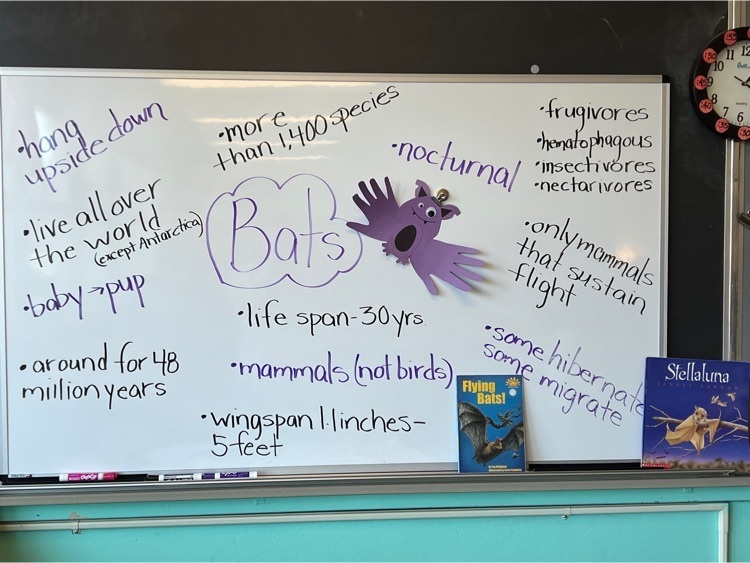 •hang
upside down
•more
than 1,400 species
•nocturnal
•frugivores
•hematophagous
•insectivores
•nectarivores
•live all over
the world
(except Antarctica)
Bats
•only mammals
that sustain
flight
•baby→pup
•life span-30yrs.
•around for 48
million years
•mammals (not birds)
•some hibernate
some migrate
•wingspan 1.1inches-
5feet
Flying
Bats!
Stellaluna
12
11
10
9
8
7
6